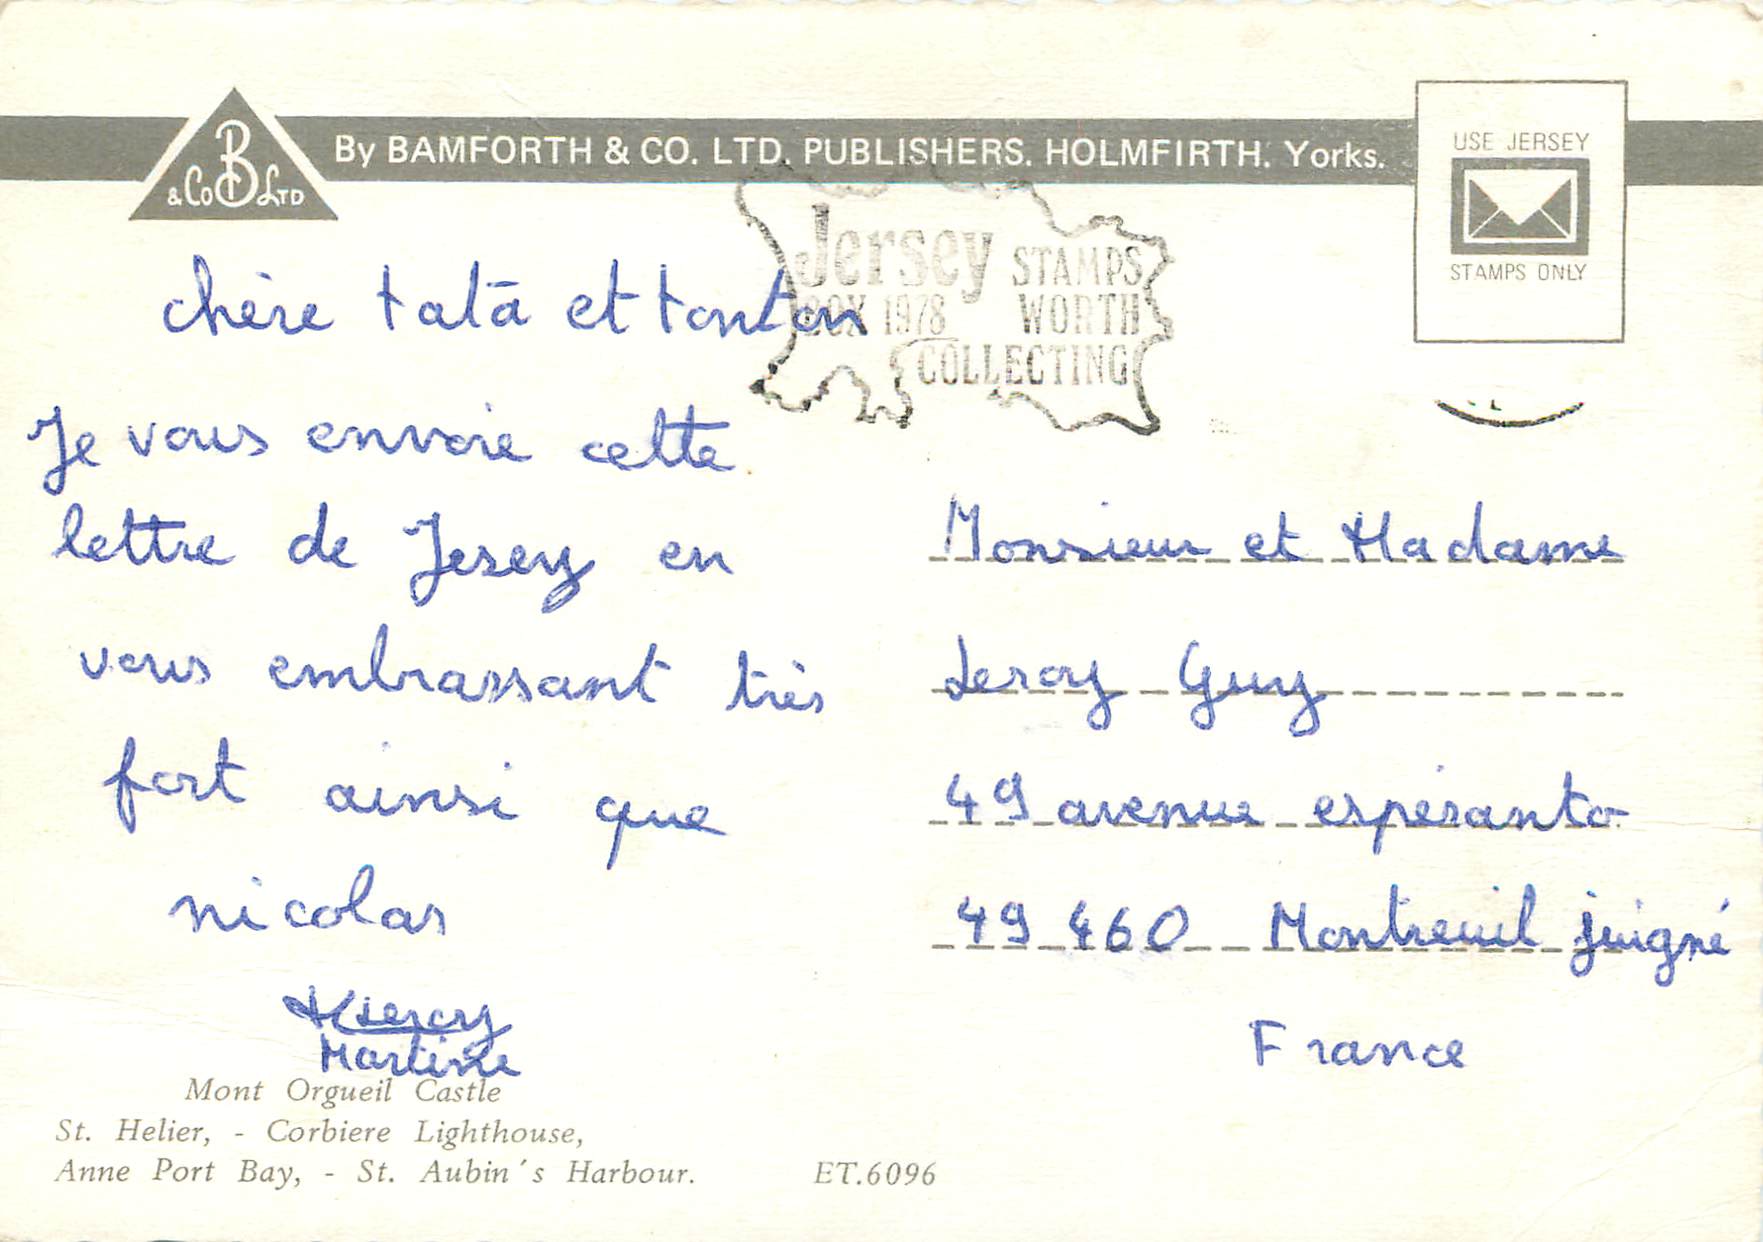 B
& Co LTD
By BAMFORTH & CO. LTD. PUBLISHERS. HOLMFIRTH. Yorks.
USE JERSEY
STAMPS ONLY
Jersey STAMPS
BOX 1978 WORTH
COLLECTING
chère tata et tonton
Je vous envoie cette
lettre de Jesery en
vous embrassant très
fort ainsi que
nicolas
Martine
Monsieur et Madame
Leroy Guy
49 avenue espéranto
49 460 Montreuil juigné
France
Mont Orgueil Castle
St. Helier, - Corbiere Lighthouse,
Anne Port Bay, - St. Aubin's Harbour. ET.6096